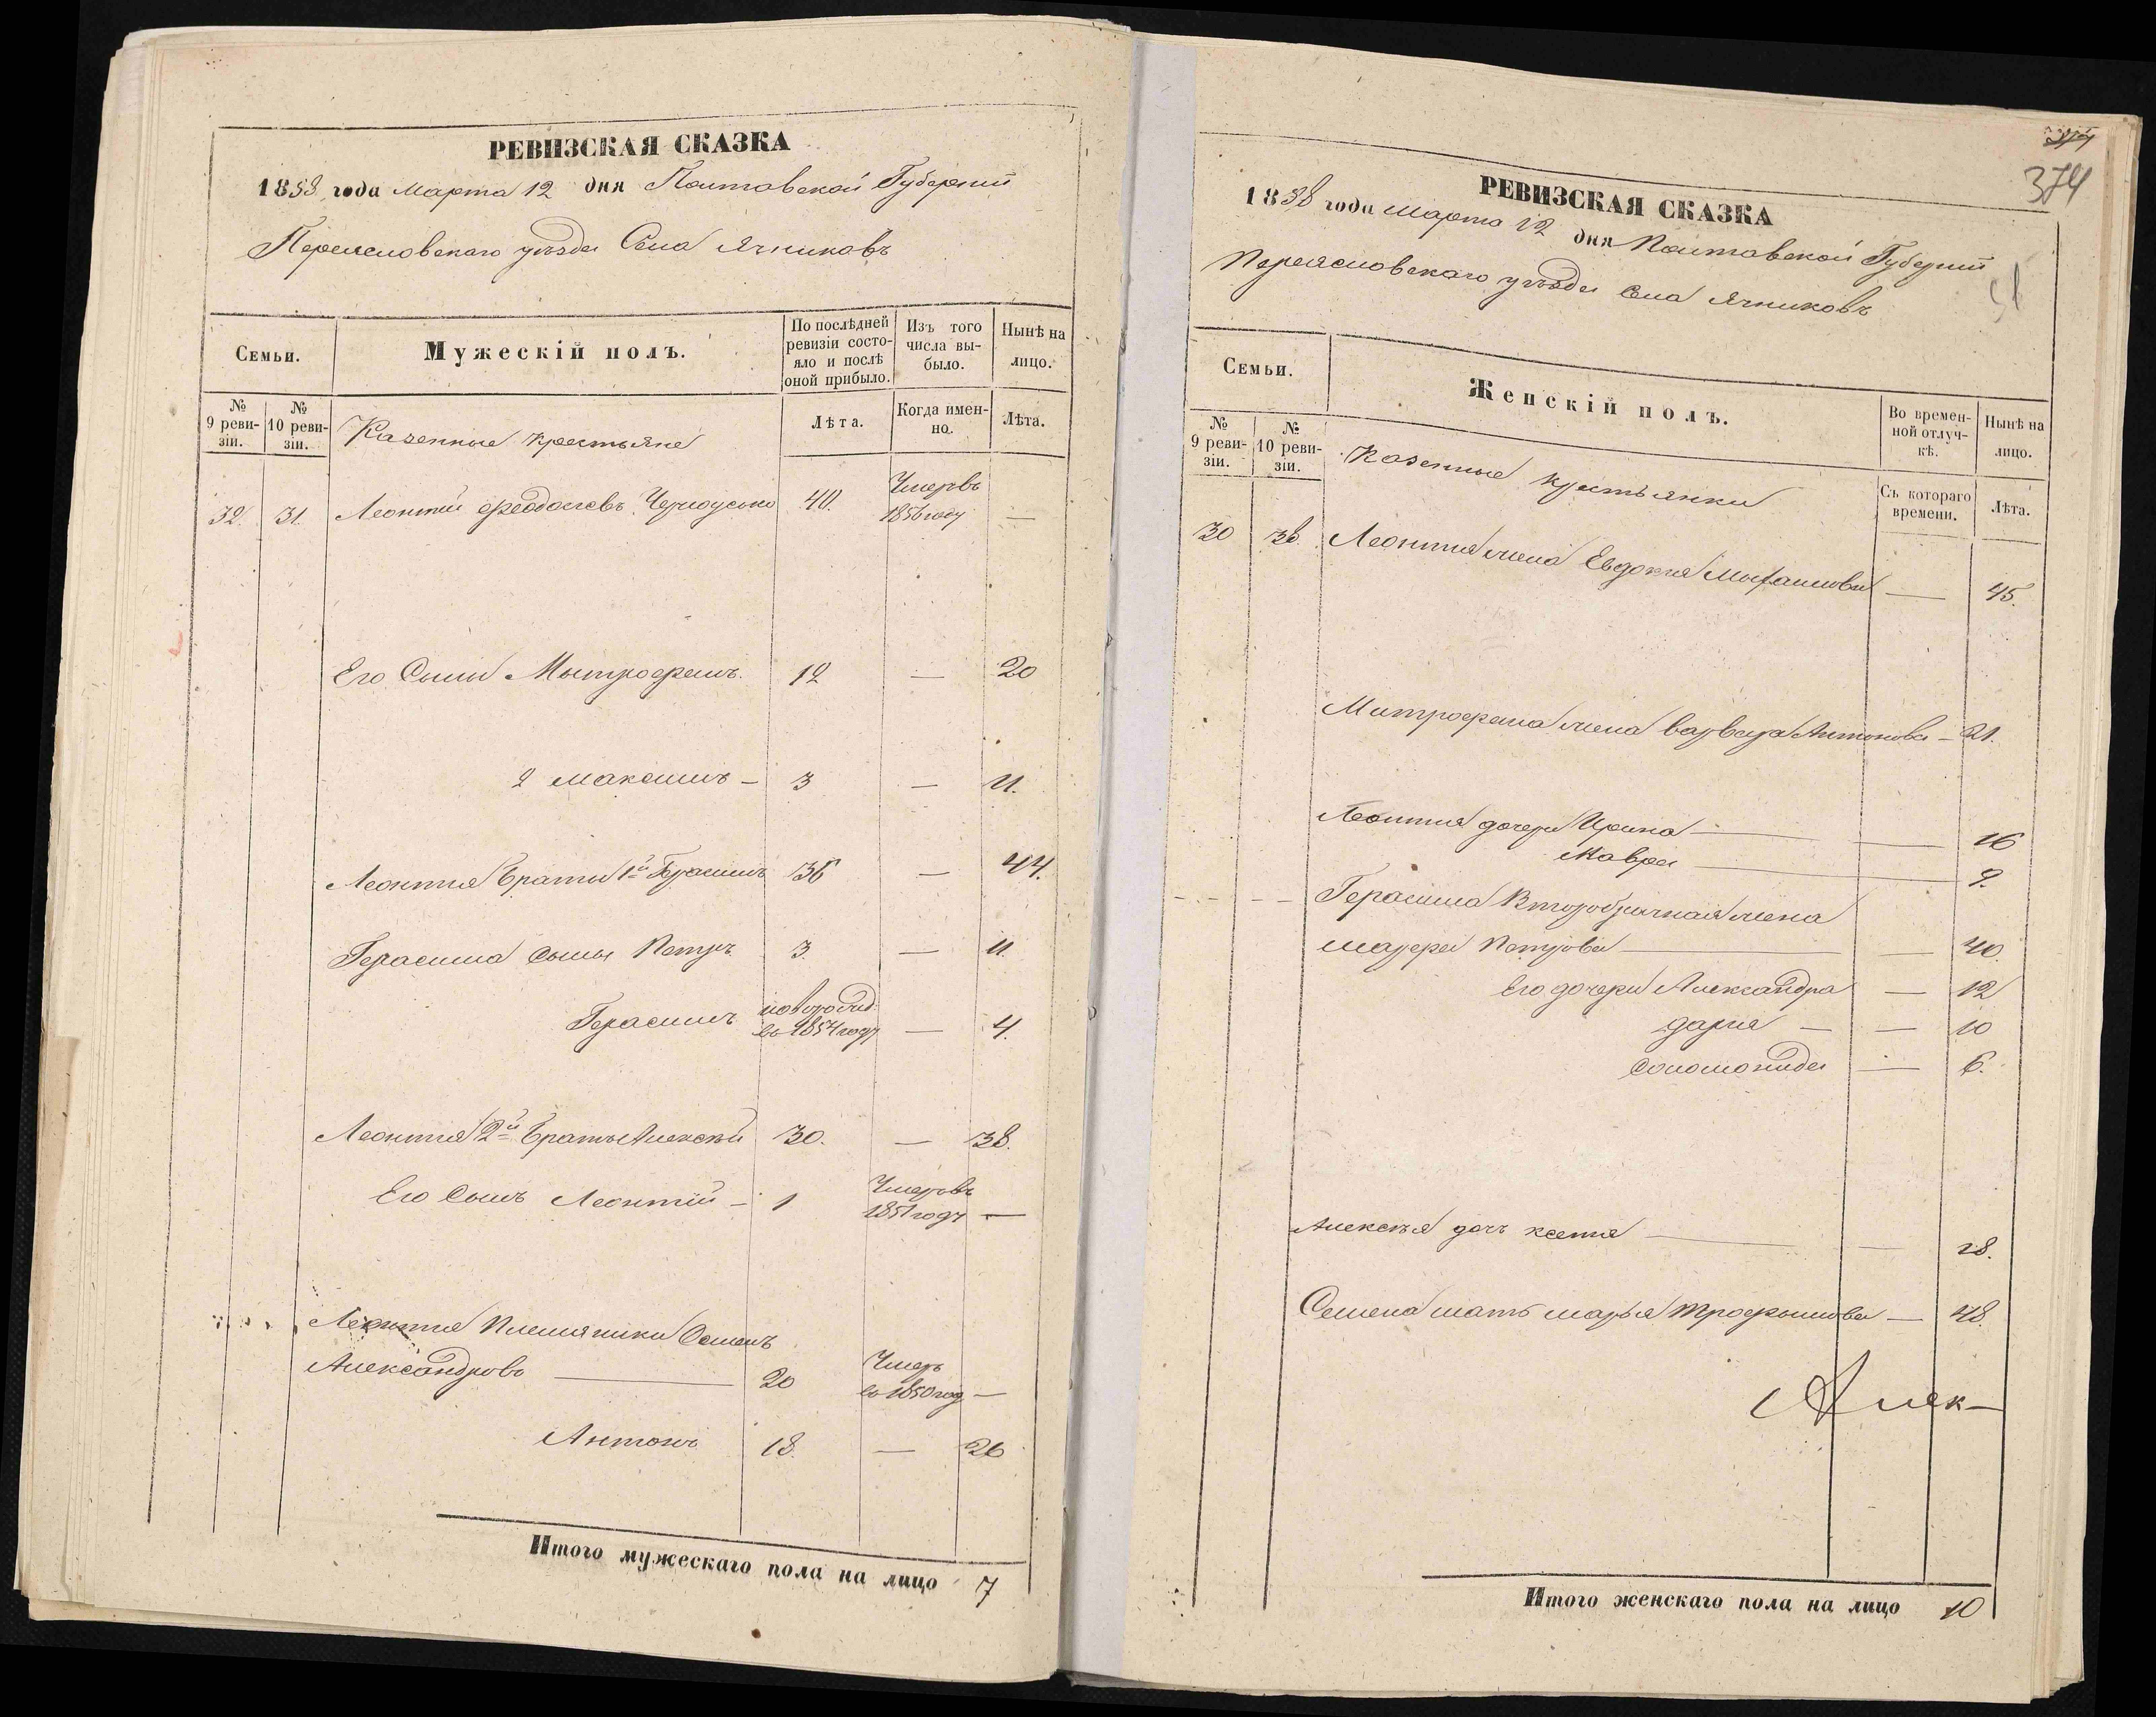 РЕВИЗСКАЯ СКАЗКА
1858 года Марта 12 дня Полтавской Губернии
Переясловскаго уезда Села Ячниковъ
Семьи.
Мужескій полъ.
По послѣдней ревизіи состояло и послѣ оной прибыло.
Изъ того числа выбыло.
Нынѣ на лицо.
№ 9 ревизіи.
№ 10 ревизіи.
Казенные крестьяне
Лѣта.
Когда именно.
Лѣта.
32. 31. Леонтий Феодосіевъ 40. Умеръ въ 1856 году —
Его Сыны Митрофанъ. 12 — 20
2 Максимъ — 3 — 11.
Леонтия Браты 1й Герасимъ 36 — 44.
Герасима Сыны Петръ 3. — 11.
Герасимъ новорожд: въ 1854 году — 4.
Леонтия 2й Братъ Алексѣй 30. — 38.
Его Сынъ Леонтій — 1 Умеръ въ 1851 году —
Леонтия Племяники Семенъ
Александровъ — 20 Умеръ въ 1850 год —
Антонъ 18. — 26
Итого мужескаго пола на лицо 7
374
374
РЕВИЗСКАЯ СКАЗКА
1858 года Марта 12 дня Полтавской Губернии
Переясловскаго уезда Села Ячниковъ
Семьи.
Женскій полъ.
Во временной отлучкѣ.
Нынѣ на лицо.
№ 9 ревизіи.
№ 10 ревизіи.
Казенные крестьянки
Съ котораго времени.
Лѣта.
30 38. Леонтия жена Евдокия — 45.
Митрофана жена варвара Антонова — 21.
Леонтия дочери Ирина — — 16
Мавра — 9.
Герасима Второбрачная жена
Петрова — — 40.
Его дочери Александра — 12
дария — — 10
Соломонида — 6.
Алексѣя дочь ксения — — 18.
Семена мать марья Трофимова — 48.
Алек-
Итого женскаго пола на лицо 10